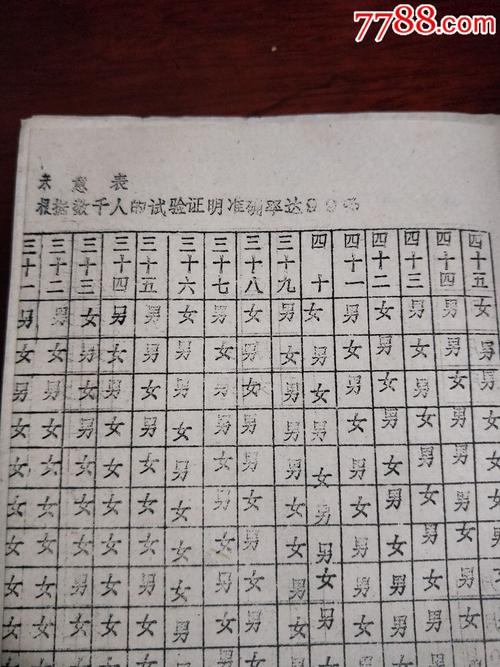 7788.com
意 表
根据数千人的试验证明准确率达99%
三十一 三十二 三十三 三十四 三十五 三十六 三十七 三十八 三十九 四十 四十一 四十二 四十三 四十四 四十五
男 男 女 男 男 女 男 男 男 女 男 女 男 女 男
女 女 男 女 男 男 女 女 女 男 女 男 女 男 男
男 男 女 男 女 女 女 女 男 男 女 女 男 女 女
女 女 男 女 男 女 男 男 女 女 男 男 女 男 男
女 女 女 女 女 男 女 女 男 女 男 女 女 男 男
女 女 女 女 女 女 女 女 女 男 女 女 女 女 女
女 女 男 女 男 女 男 女 女 男 女 男 女 男 女
女 女 男 女 男 女 女 女 男 女 男 女 男 男 男
女 女 女 女 女 男 女 女 男 男 女 女 男 男 女